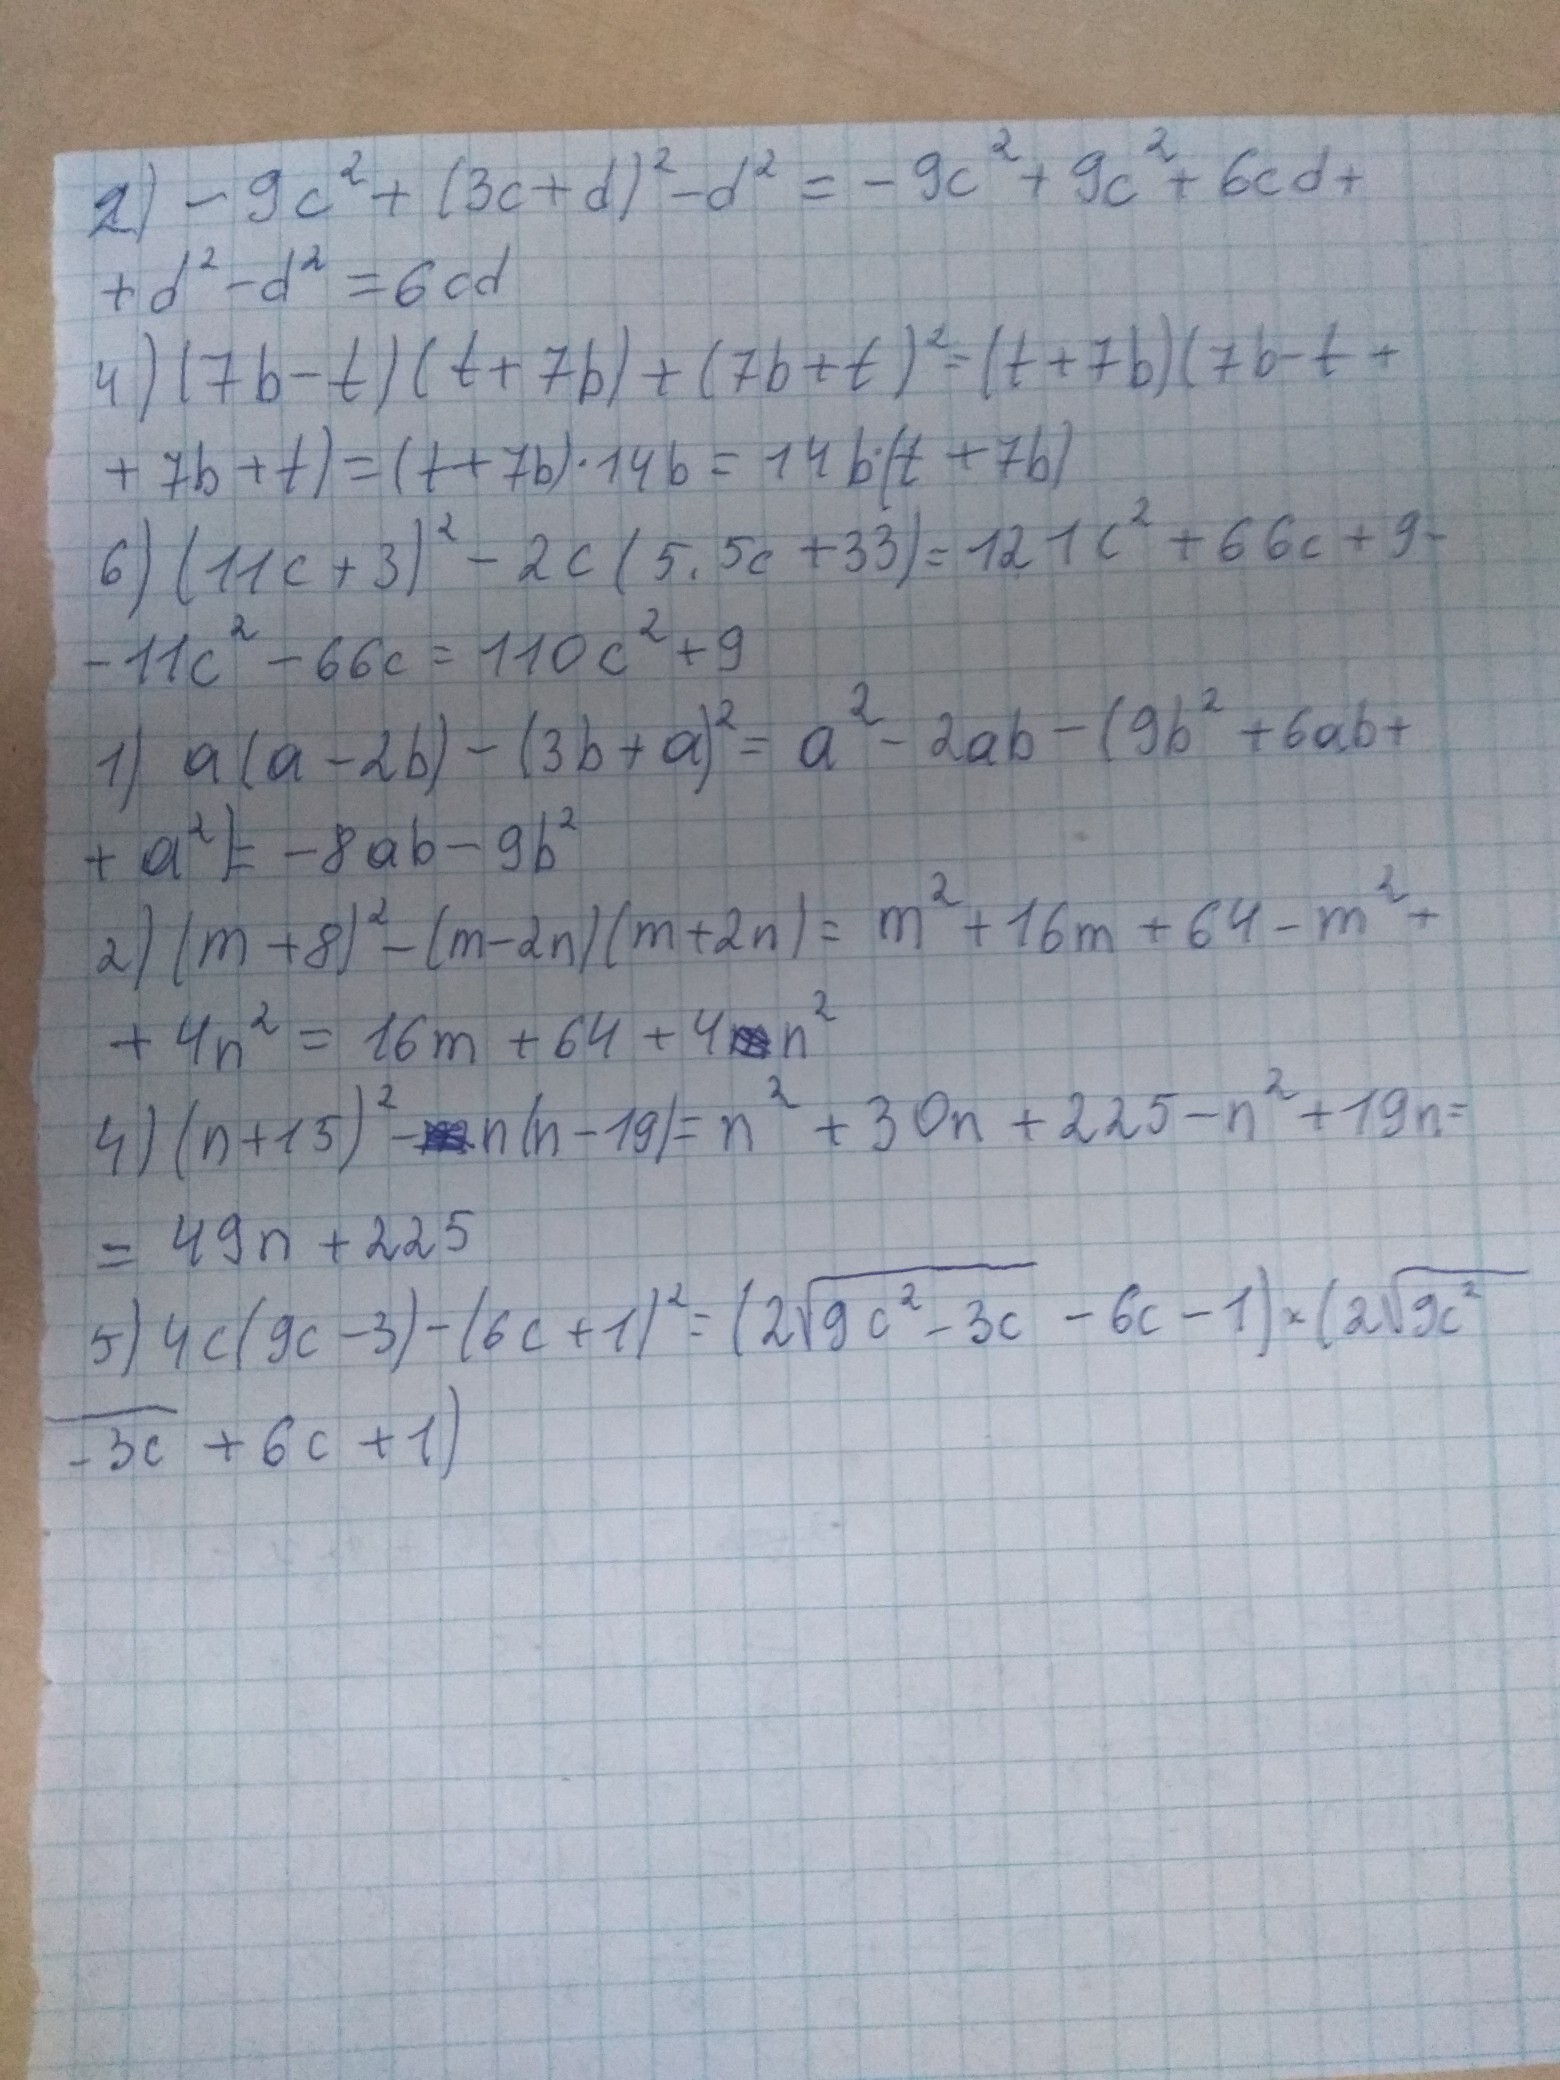 2) -9c² + (3c+d)² -d² = -9c² + 9c² + 6cd +
+d² -d² = 6cd
4) (7b-t)(t+7b) + (7b+t)² = (t+7b)(7b-t +
+ 7b+t) = (t+7b)·14b = 14b·(t+7b)
6) (11c+3)² - 2c(5.5c+33) = 121c² + 66c + 9 -
-11c² - 66c = 110c² + 9
1) a(a-2b) - (3b+a)² = a² - 2ab - (9b² + 6ab +
+ a²) = -8ab - 9b²
2) (m+8)² - (m-2n)(m+2n) = m² + 16m + 64 - m² +
+ 4n² = 16m + 64 + 4n²
4) (n+15)² - n(n-19) = n² + 30n + 225 - n² + 19n =
= 49n + 225
5) 4c(9c-3) - (6c+1)² = (2√9c²-3c - 6c - 1) × (2√9c²
-3c + 6c + 1)